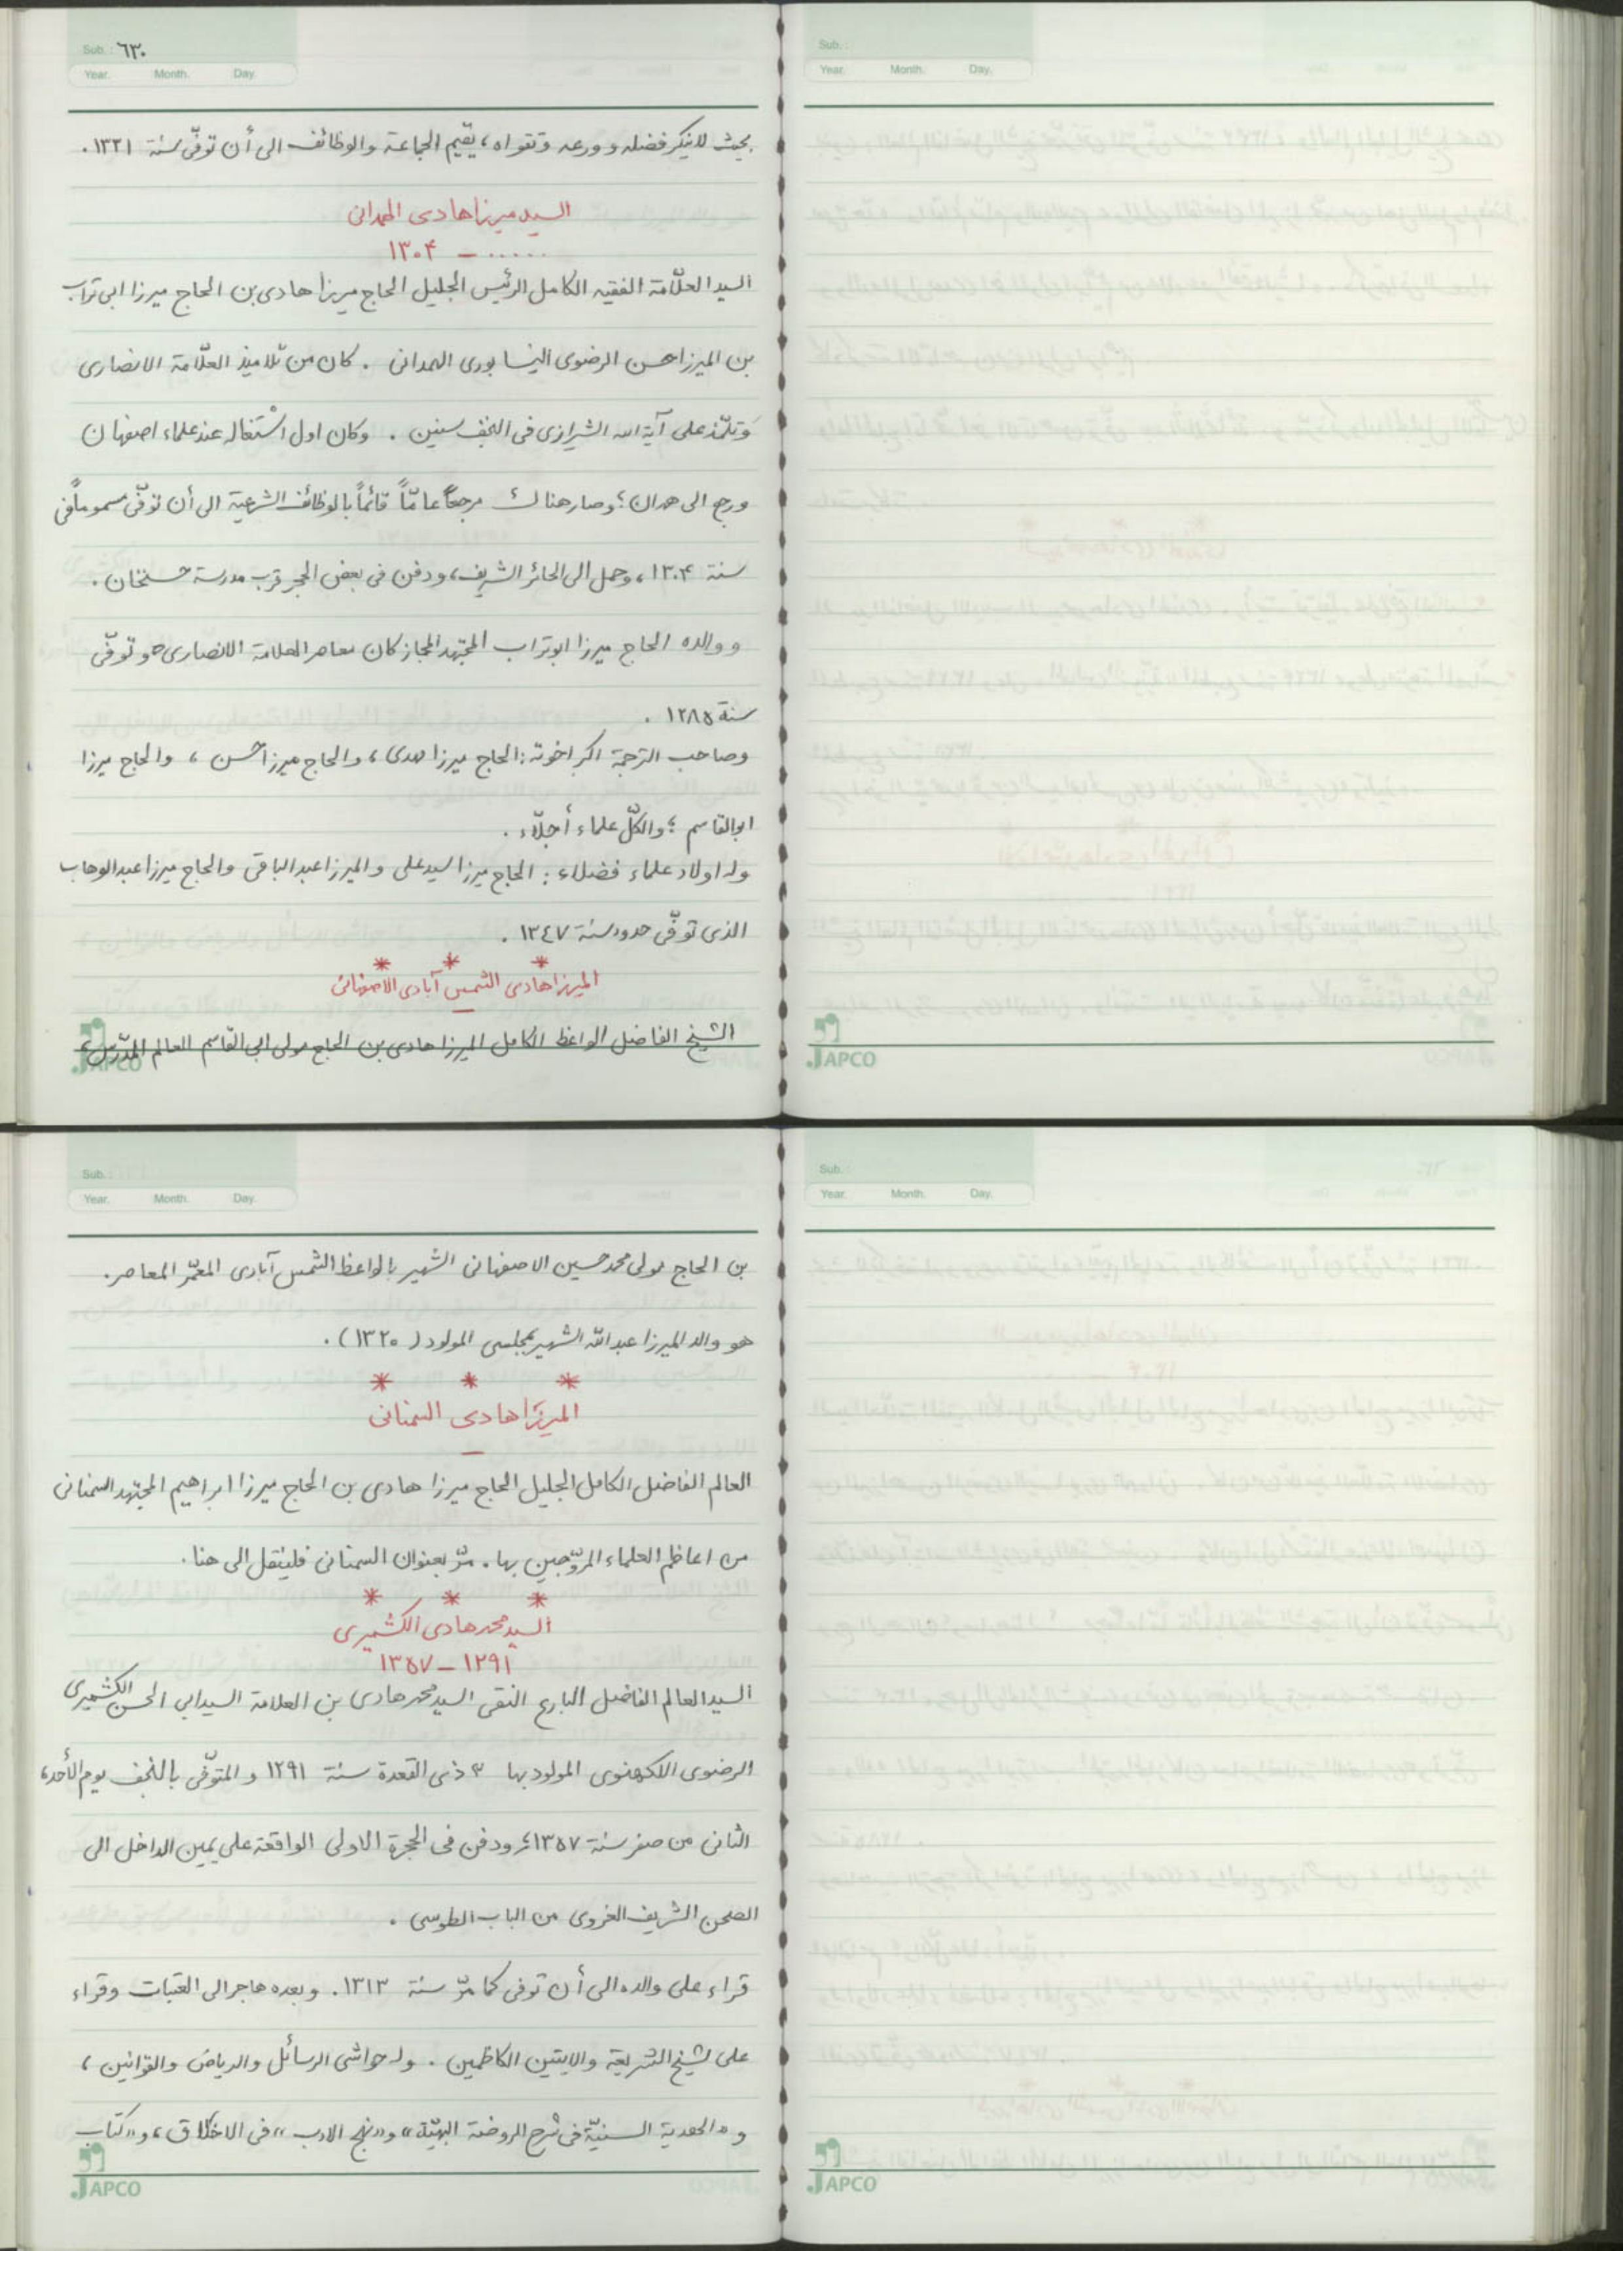 Sub. : ٦٣٠
Year. Month. Day.
بحيث لاينكر فضله وورعه وتقواه، يقيم الجماعة والوظائف الى أن توفّى سنة ١٣٢١.
السيد ميرزا هادى الهمدانى
..... – ١٣٠۴
السيد العلّامة الفقيه الكامل الرئيس الجليل الحاج ميرزا هادى بن الحاج ميرزا ابى تراب
بن الميرزا حسن الرضوى النيسابورى الهمدانى . كان من تلاميذ العلّامة الانصارى
وَتلمّذ على آية الله الشيرازى فى النجف سنين . وكان اول اشتغاله عند علماء اصفهان
ورجع الى همدان؛ وصار هناك مرجعاً عامّاً قائماً بالوظائف الشرعية الى أن توفّى مسموماً فى
سنة ١٣٠۴، وحمل الى الحائر الشريف، ودفن فى بعض الحجر قرب مدرسة حسنخان.
ووالده الحاج ميرزا ابوتراب المجتهد المجاز كان معاصر العلامة الانصارى وتوفّى
سنة ١٢٨٥ .
وصاحب الترجمة اكبر اخوته: الحاج ميرزا مهدى، والحاج ميرزا حسن ، والحاج ميرزا
ابوالقاسم ؛ والكلّ علماء أجلّاء .
وله اولاد علماء فضلاء : الحاج ميرزا سيد على والميرزا عبدالباقى والحاج ميرزا عبدالوهاب
الذى توفّى حدود سنة ١٣٤٧ .
* * *
الميرزا هادى الشمس آبادى الاصفهانى
—
الشيخ الفاضل الواعظ الكامل الميرزا هادى بن الحاج مولى ابى القاسم العالم المدّرس،
JAPCO
Sub. :
Year. Month. Day.
JAPCO
Sub. :
Year. Month. Day.
بن الحاج مولى محمد حسين الاصفهانى الشهير بالواعظ الشمس آبادى المعمّر المعاصر.
هو والد الميرزا عبدالله الشهير بمجلسى المولود (١٣٢٠) .
* * *
الميرزا هادى السمنانى
—
العالم الفاضل الكامل الجليل الحاج ميرزا هادى بن الحاج ميرزا ابراهيم المجتهد السمنانى
من اعاظم العلماء المروّجين بها. مرّ بعنوان السمنانى فلينقل الى هنا.
* * *
السيد محمد هادى الكشميرى
١٢٩١ – ١٣٥٧
السيد العالم الفاضل البارع التقى السيد محمد هادى بن العلامة السيد ابى الحسن الكشميرى
الرضوى اللكهنوى المولود بها ٣ ذى القعدة سنة ١٢٩١ والمتوفّى بالنجف يوم الأحد،
الثانى من صفر سنة ١٣٥٧، ودفن فى الحجرة الاولى الواقعة على يمين الداخل الى
الصحن الشريف الغروى من الباب الطوسى .
قراء على والده الى أن توفى كما مرّ سنة ١٣١٣. وبعده هاجر الى العتبات وقراء
على شيخ الشريعة والايتين الكاظمين . وله حواشى الرسائل والرياض والقوانين ،
و«الهدية السنيّة فى شرح الروضة البهيّة» و«نهج الادب» فى الاخلاق، و«كتاب
JAPCO
Sub. :
Year. Month. Day.
JAPCO